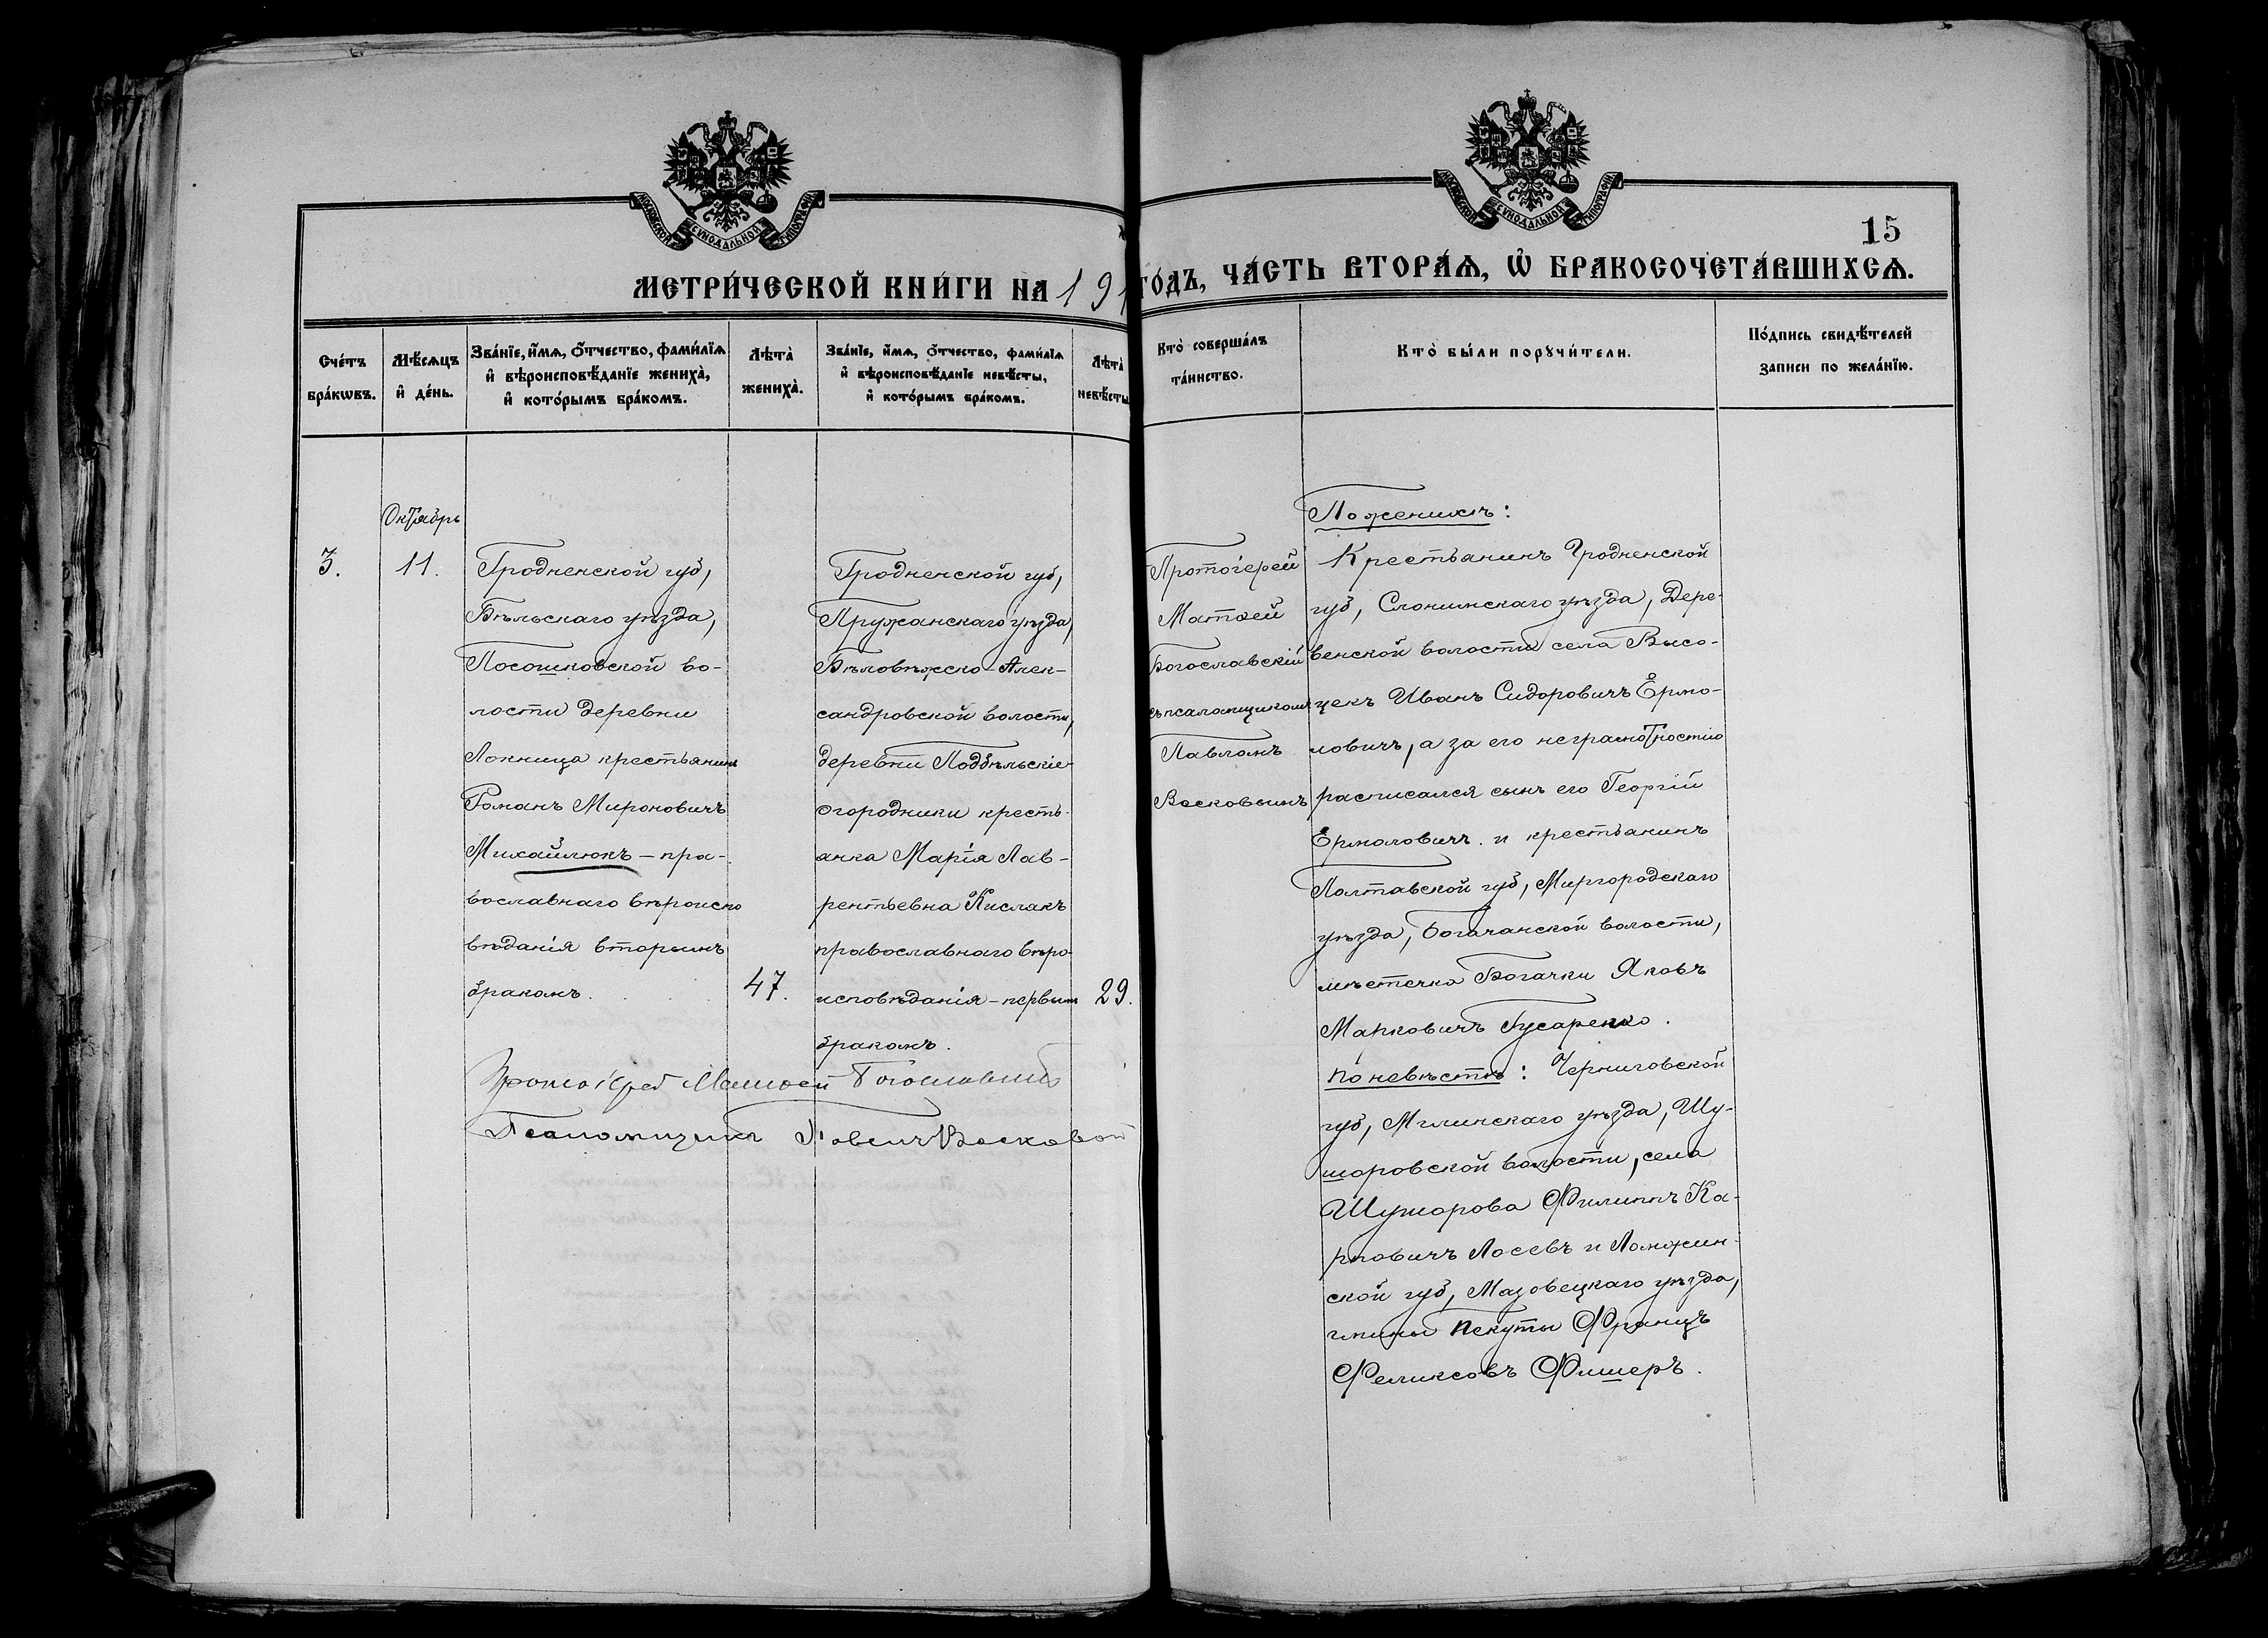 МОСКОВСКОЙ СѴНОДАЛЬНОЙ ТИПОГРАФІИ
МОСКОВСКОЙ СѴНОДАЛЬНОЙ ТИПОГРАФІИ
15
МЕТРИ́ЧЕСКОЙ КНИ́ГИ НА 191 ГО́ДЪ, ЧА́СТЬ ВТОРА́Ѧ, Ѽ БРАКОСОЧЕТА́ВШИХСѦ.
Сче́тъ
бра́кѡвъ.
Мѣ́сѧцъ
и҆ де́нь.
Зва́нїе, и҆́мѧ, ѻ҆́тчество, фами́лїѧ
и҆ вѣроисповѣ́данїе жениха̀,
и҆ кото́рымъ бра́комъ.
Лѣта̀
жениха̀.
Зва́нїе, и҆́мѧ, ѻ҆́тчество, фами́лїѧ
и҆ вѣроисповѣ́данїе невѣ́сты,
и҆ кото́рымъ бра́комъ.
Лѣта̀
невѣ́сты
Кто̀ соверша́лъ
та́инство.
Кто̀ бы́ли порꙋчи́тели.
По́дпись свидѣ́телей
записи по жела́нїю.
Октябрь
3.
11.
Гродненской губ,
Бѣльскаго уѣзда,
Посошковской во-
лости деревни
Локница крестьянинъ
Романъ Мироновичъ
Михайлюкъ – пра-
вославнаго вѣроиспо
вѣданія вторымъ
бракомъ.
47.
Гродненской губ,
Пружанскаго уѣзда,
Бѣловѣжско-Алек-
сандровской волости,
деревни Подбѣльскіе-
огородники кресть-
анка Марія Лав-
рентьевна Кислакъ
православнаго вѣро-
исповѣданія – первым
бракомъ.
29.
Протоіерей Матѳей Богословскій
Псаломщикъ Павелъ Восковой
Протоіерей
Матѳей
Богославскій
съ псаломщикомъ
Павломъ
Восковымъ
По женихѣ:
Крестьянинъ Гродненской
губ, Слонимскаго уѣзда, Дере-
венской волости села Высо-
цекъ Иванъ Сидоровичъ Ермо-
ловичъ, а за его неграмотностію
расписался сынъ его Георгій
Ермоловичъ. и крестьянинъ
Полтавской губ, Миргородскаго
уѣзда, Богачанской волости,
мѣстечка Богачки Яковъ
Марковичъ Гусаренко.
По невѣстѣ: Черниговской
губ, Мглинскаго уѣзда, Шу-
моровской волости, села
Шуморова Филиппъ Ка-
рповичъ Лосевъ и Ломжин-
ской губ, Мазовецкаго уѣзда,
гмины Пекуты Францъ
Феликсовъ Фишеръ.